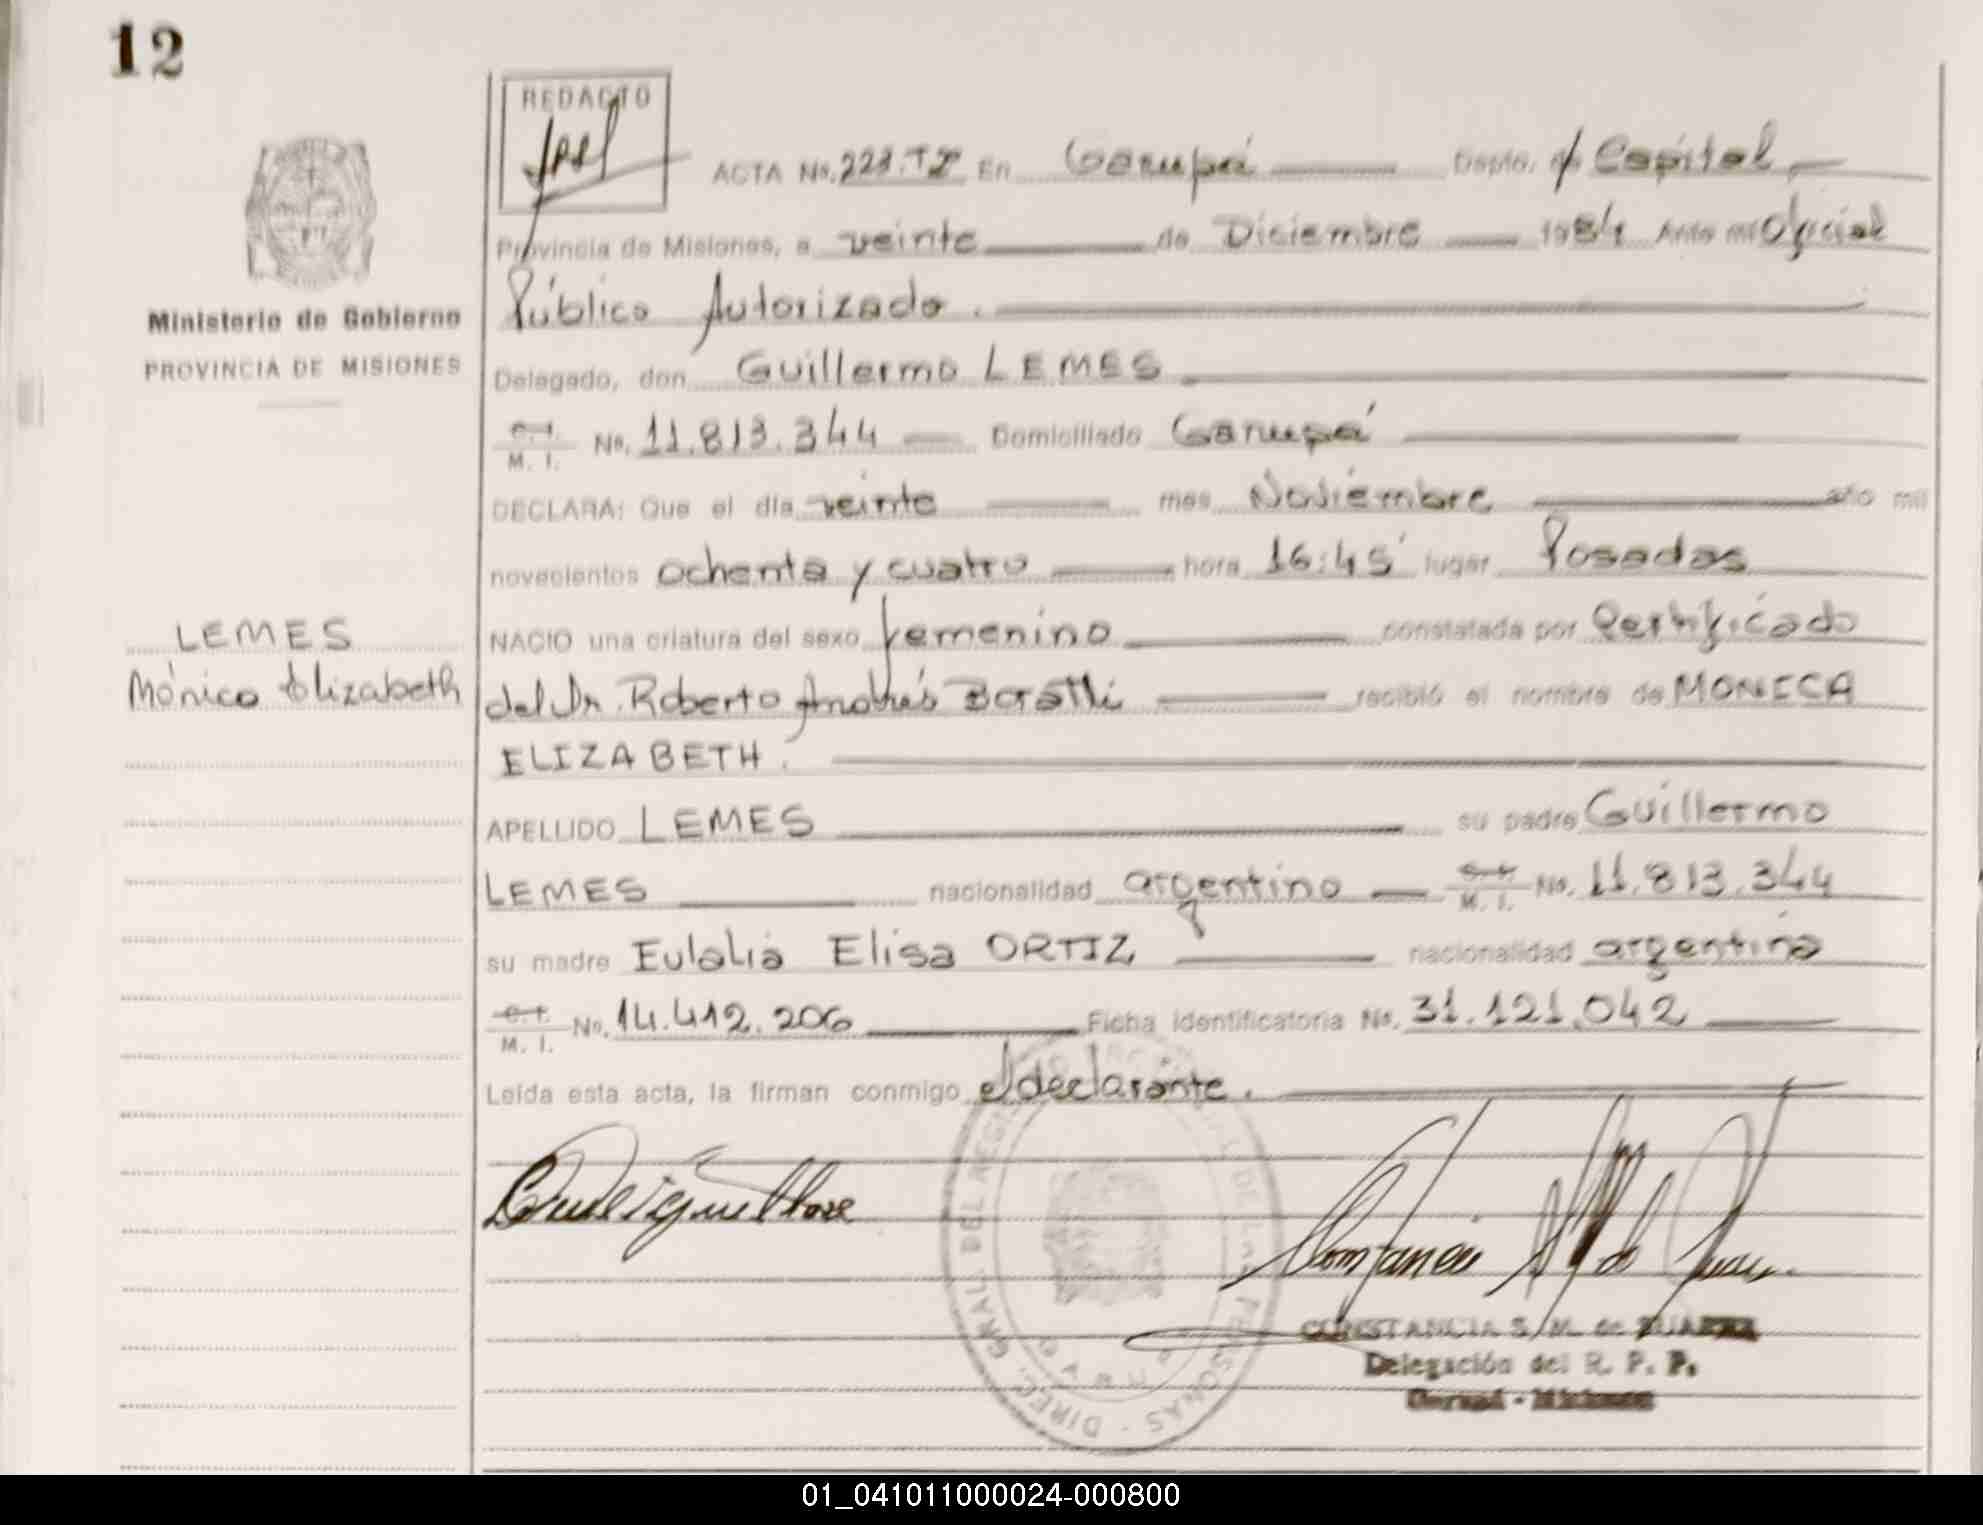 12
REDACTO
ACTA No. 223.TI En Garupá Depto. Capital
Provincia de Misiones, a veinte de Diciembre 1984 Ante mi Oficial
Público Autorizado.
Delegado, don Guillermo LEMES
C. I. M. I. No. 11.813.344 Domiciliado Garupá
DECLARA: Que el día veinte mes Noviembre año mil
novecientos ochenta y cuatro hora 16:45 lugar Posadas
NACIO una criatura del sexo femenino constatada por Certificado
del Dr. Roberto Andrés recibió el nombre de MONICA
ELIZABETH.
APELLIDO LEMES su padre Guillermo
LEMES nacionalidad argentino C. I. M. I. No. 11.813.344
su madre Eulalia Elisa ORTIZ nacionalidad argentina
C. I. M. I. No. 14.412.206 Ficha identificatoria No. 31.121.042
Leída esta acta, la firman conmigo el declarante.
Ministerio de Gobierno
PROVINCIA DE MISIONES
LEMES
Mónica Elizabeth
DIREC. GRAL. DEL REGISTRO DE LAS PERSONAS
CONSTANCIA S. M. de SUAREZ
Delegación del R. P. P.
Garupá - Misiones
01_041011000024-000800